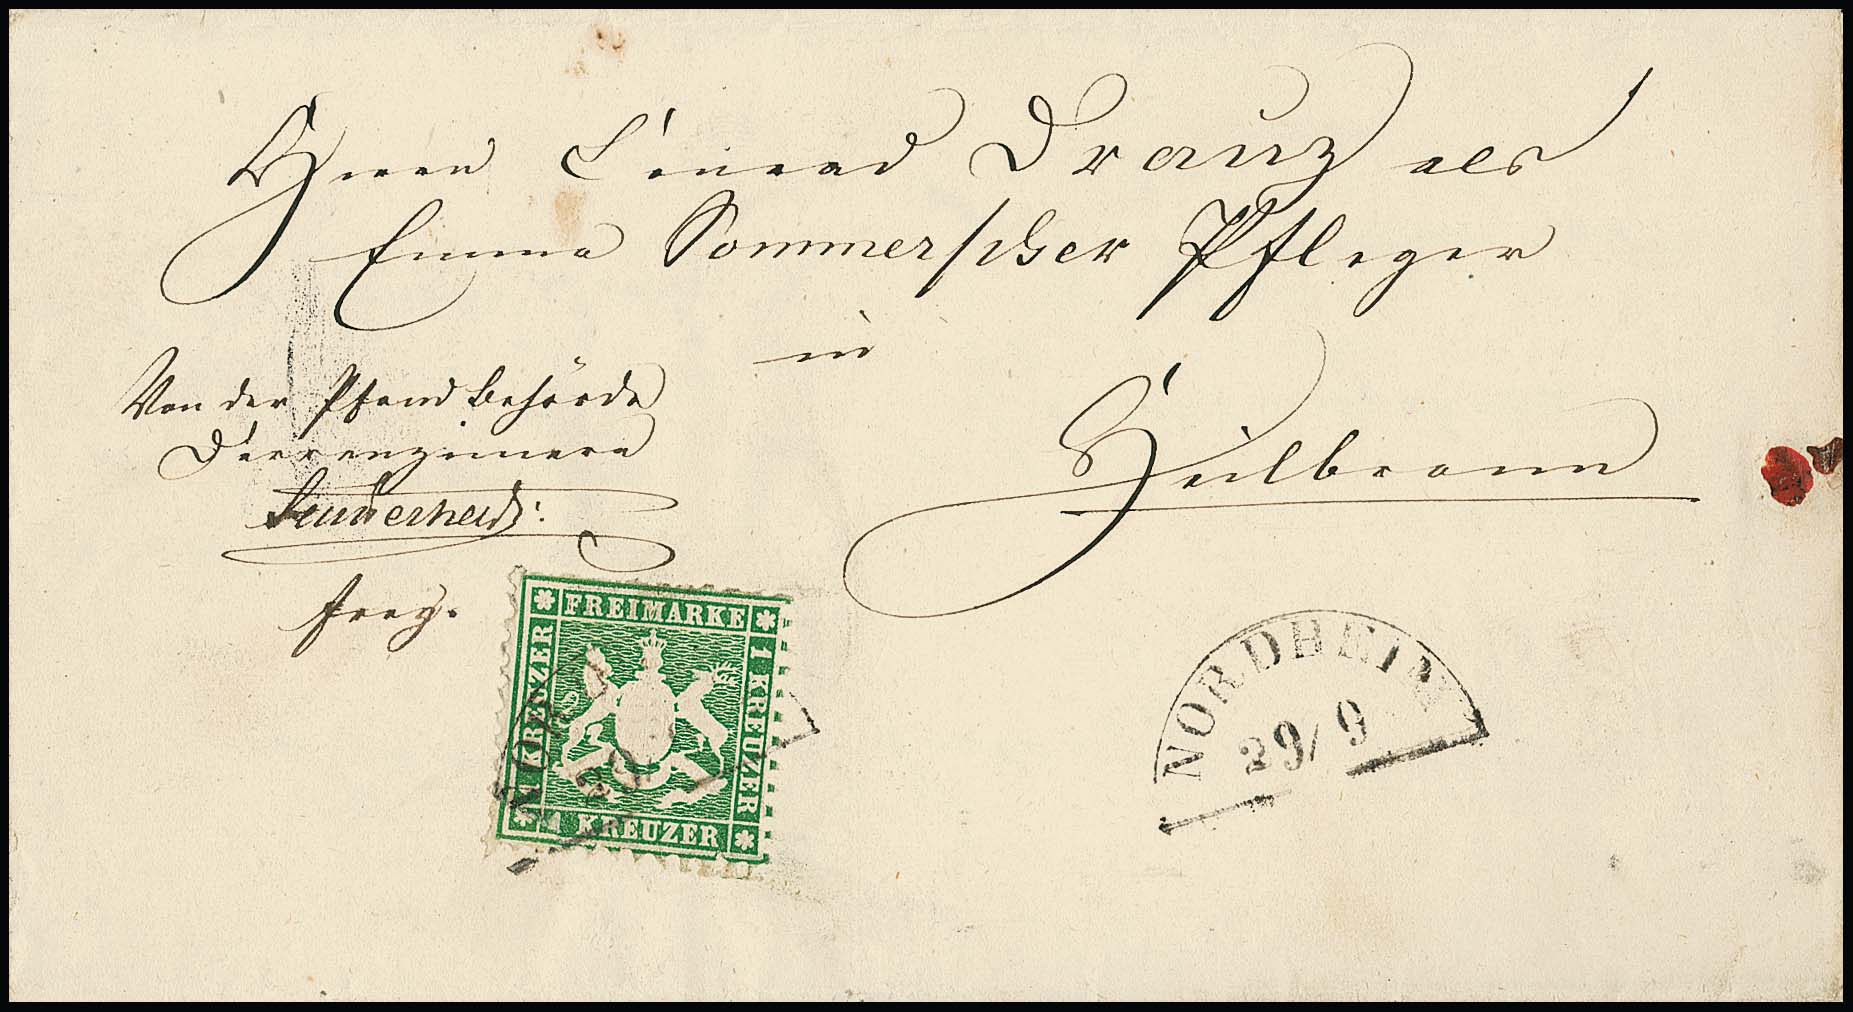 Herrn Conrad Drauz als
Emma Sommer'scher Pfleger
in
Heilbronn
Von der Pfandbehörde
Dürrenzimmern
frey.
FREIMARKE
1 KREUZER
1 KREUZER
1 KREUZER
NORDHEIM
29/9